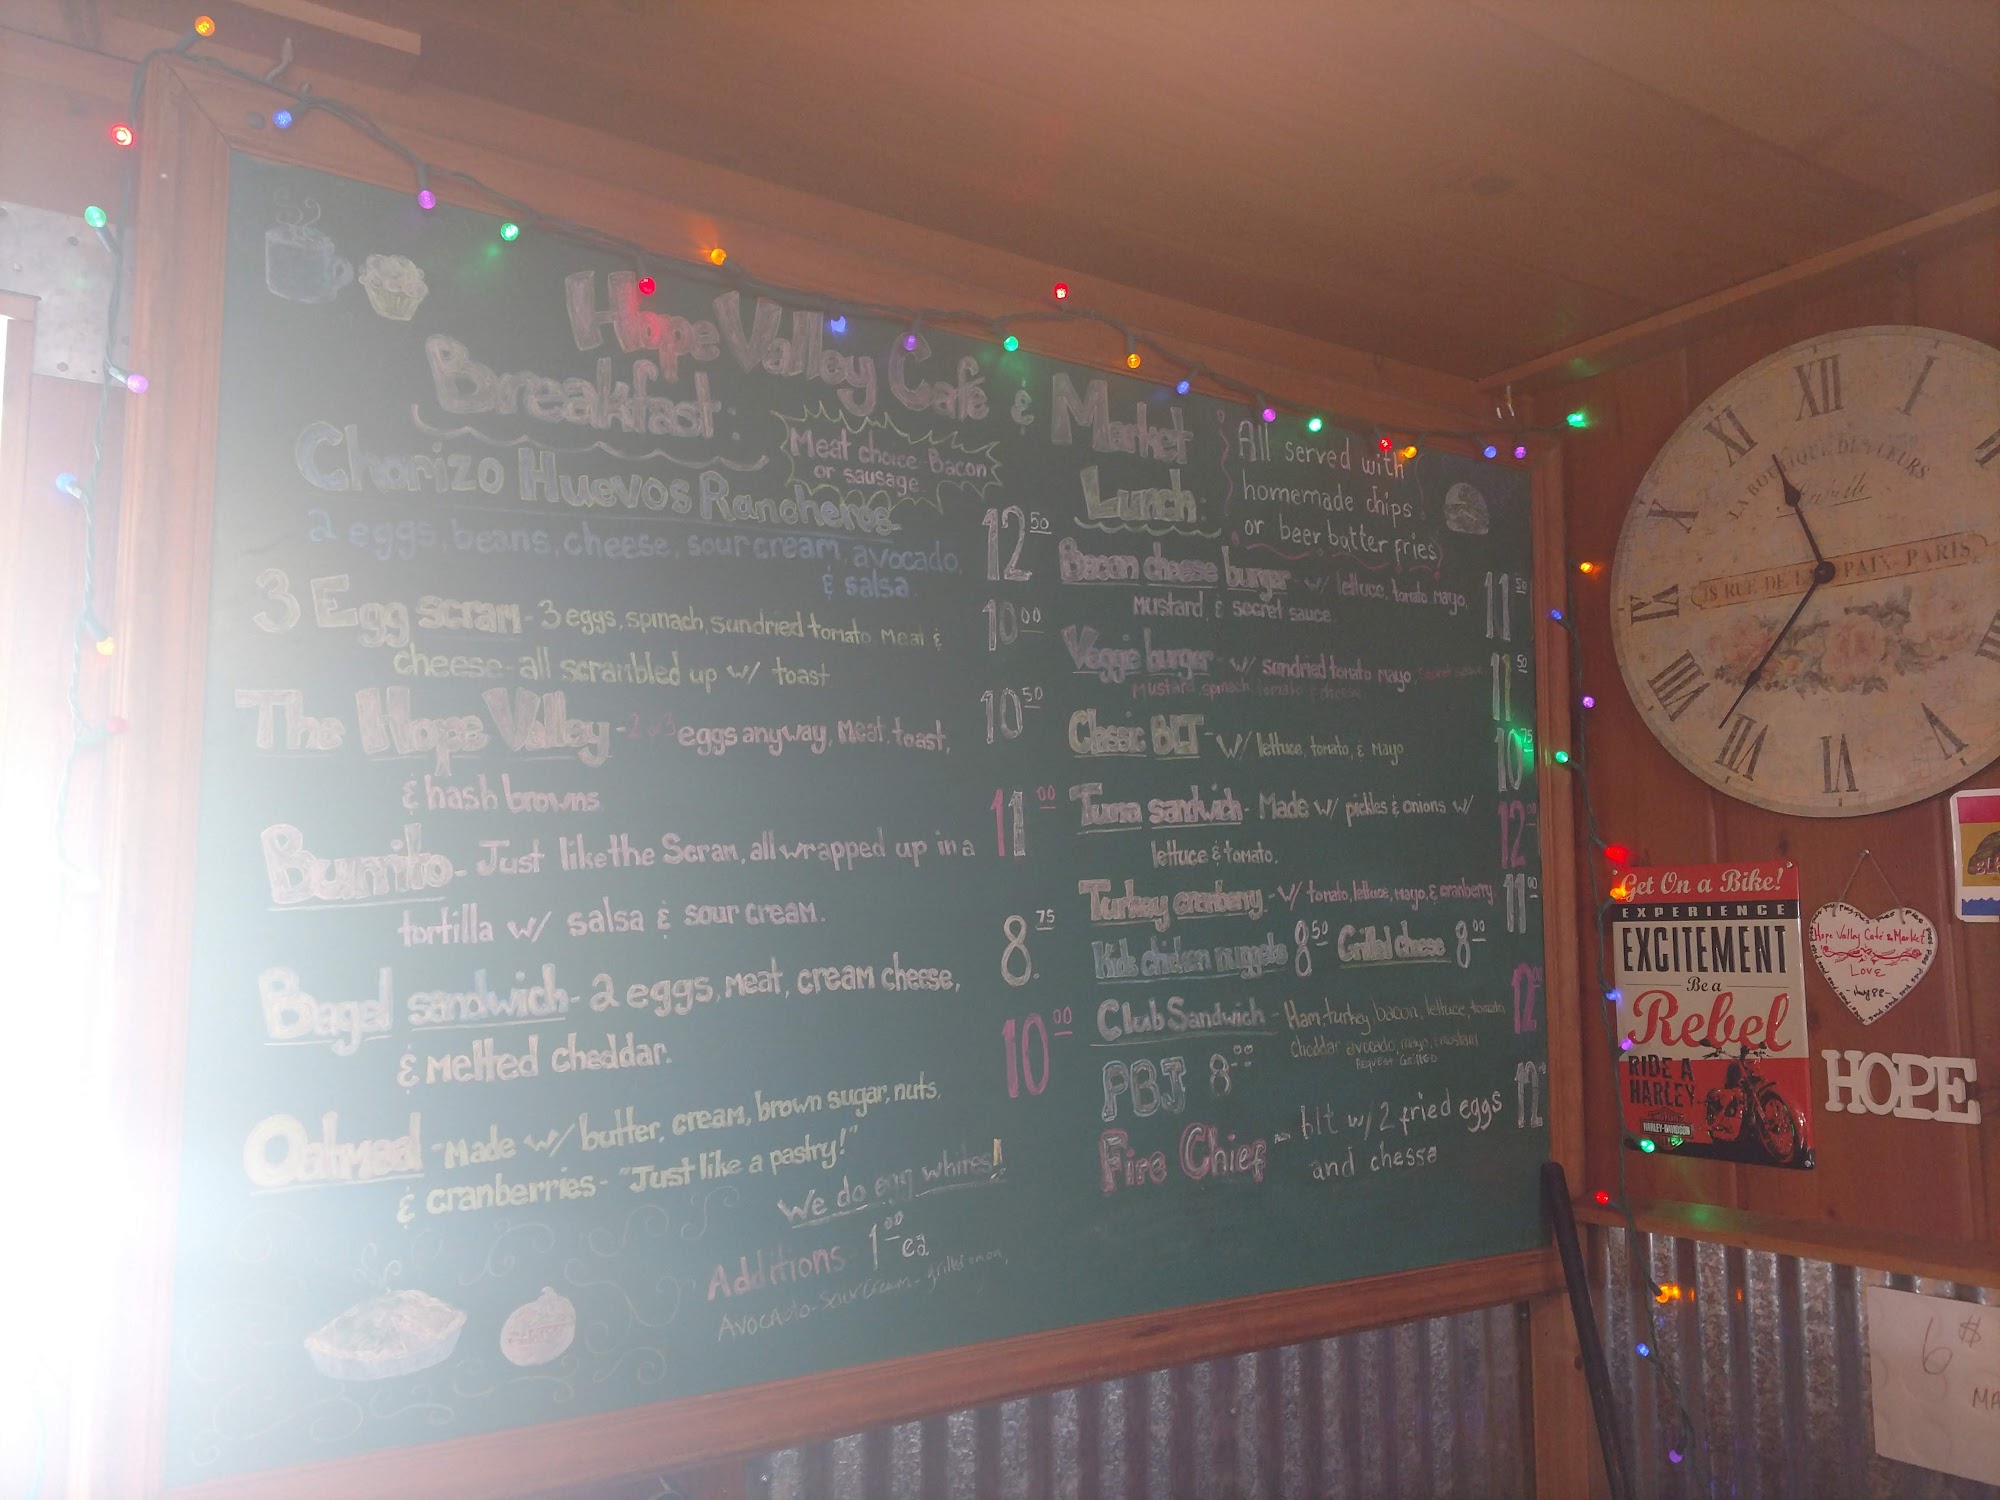 Hope Valley Café & Market
Breakfast:
Meat choice Bacon
or sausage
Chorizo Huevos Rancheros 12 50
2 eggs, beans, cheese, sour cream, avocado,
& salsa.
3 Egg scram - 3 eggs, spinach, sundried tomato, meat & 10 00
cheese - all scrambled up w/ toast
The Hope Valley - 2 or 3 eggs anyway, meat, toast, 10 50
& hash browns
Burrito - Just like the Scram, all wrapped up in a 11 00
tortilla w/ salsa & sour cream.
Bagel sandwich - 2 eggs, meat, cream cheese, 8. 75
& melted cheddar.
Oatmeal - Made w/ butter, cream, brown sugar, nuts, 10 00
& cranberries - "Just like a pastry!"
We do egg whites!
Additions 1 00 ea
Avocado - Sour Cream - grilled onion,
Lunch:
All served with
homemade chips
or beer batter fries
Bacon cheese burger - w/ lettuce, tomato, mayo, 11 50
mustard, & secret sauce.
Veggie burger - w/ sundried tomato mayo, secret sauce 11 50
mustard, spinach, tomato & cheese
Classic BLT - w/ lettuce, tomato, & mayo 10 75
Tuna sandwich - Made w/ pickles & onions w/ 12
lettuce & tomato.
Turkey cranberry - w/ tomato, lettuce, mayo, & cranberry 11 00
Kids chicken nuggets 8 50 Grilled cheese 8 00
Club Sandwich - Ham, turkey, bacon, lettuce, tomato 12
cheddar, avocado, mayo, & mustard
Request Grilled
PBJ 8 00
Fire Chief - blt w/ 2 fried eggs 12
and chesse
XII
I
XI
X
IX
VIII
VII
VI
V
LA BOUTIQUE DES FLEURS
18 RUE DE LA PAIX - PARIS
Get On a Bike!
EXPERIENCE
EXCITEMENT
Be a
Rebel
RIDE A
HARLEY
HARLEY-DAVIDSON
Hope Valley Café & Market
LOVE
HOPE
6 $
MA